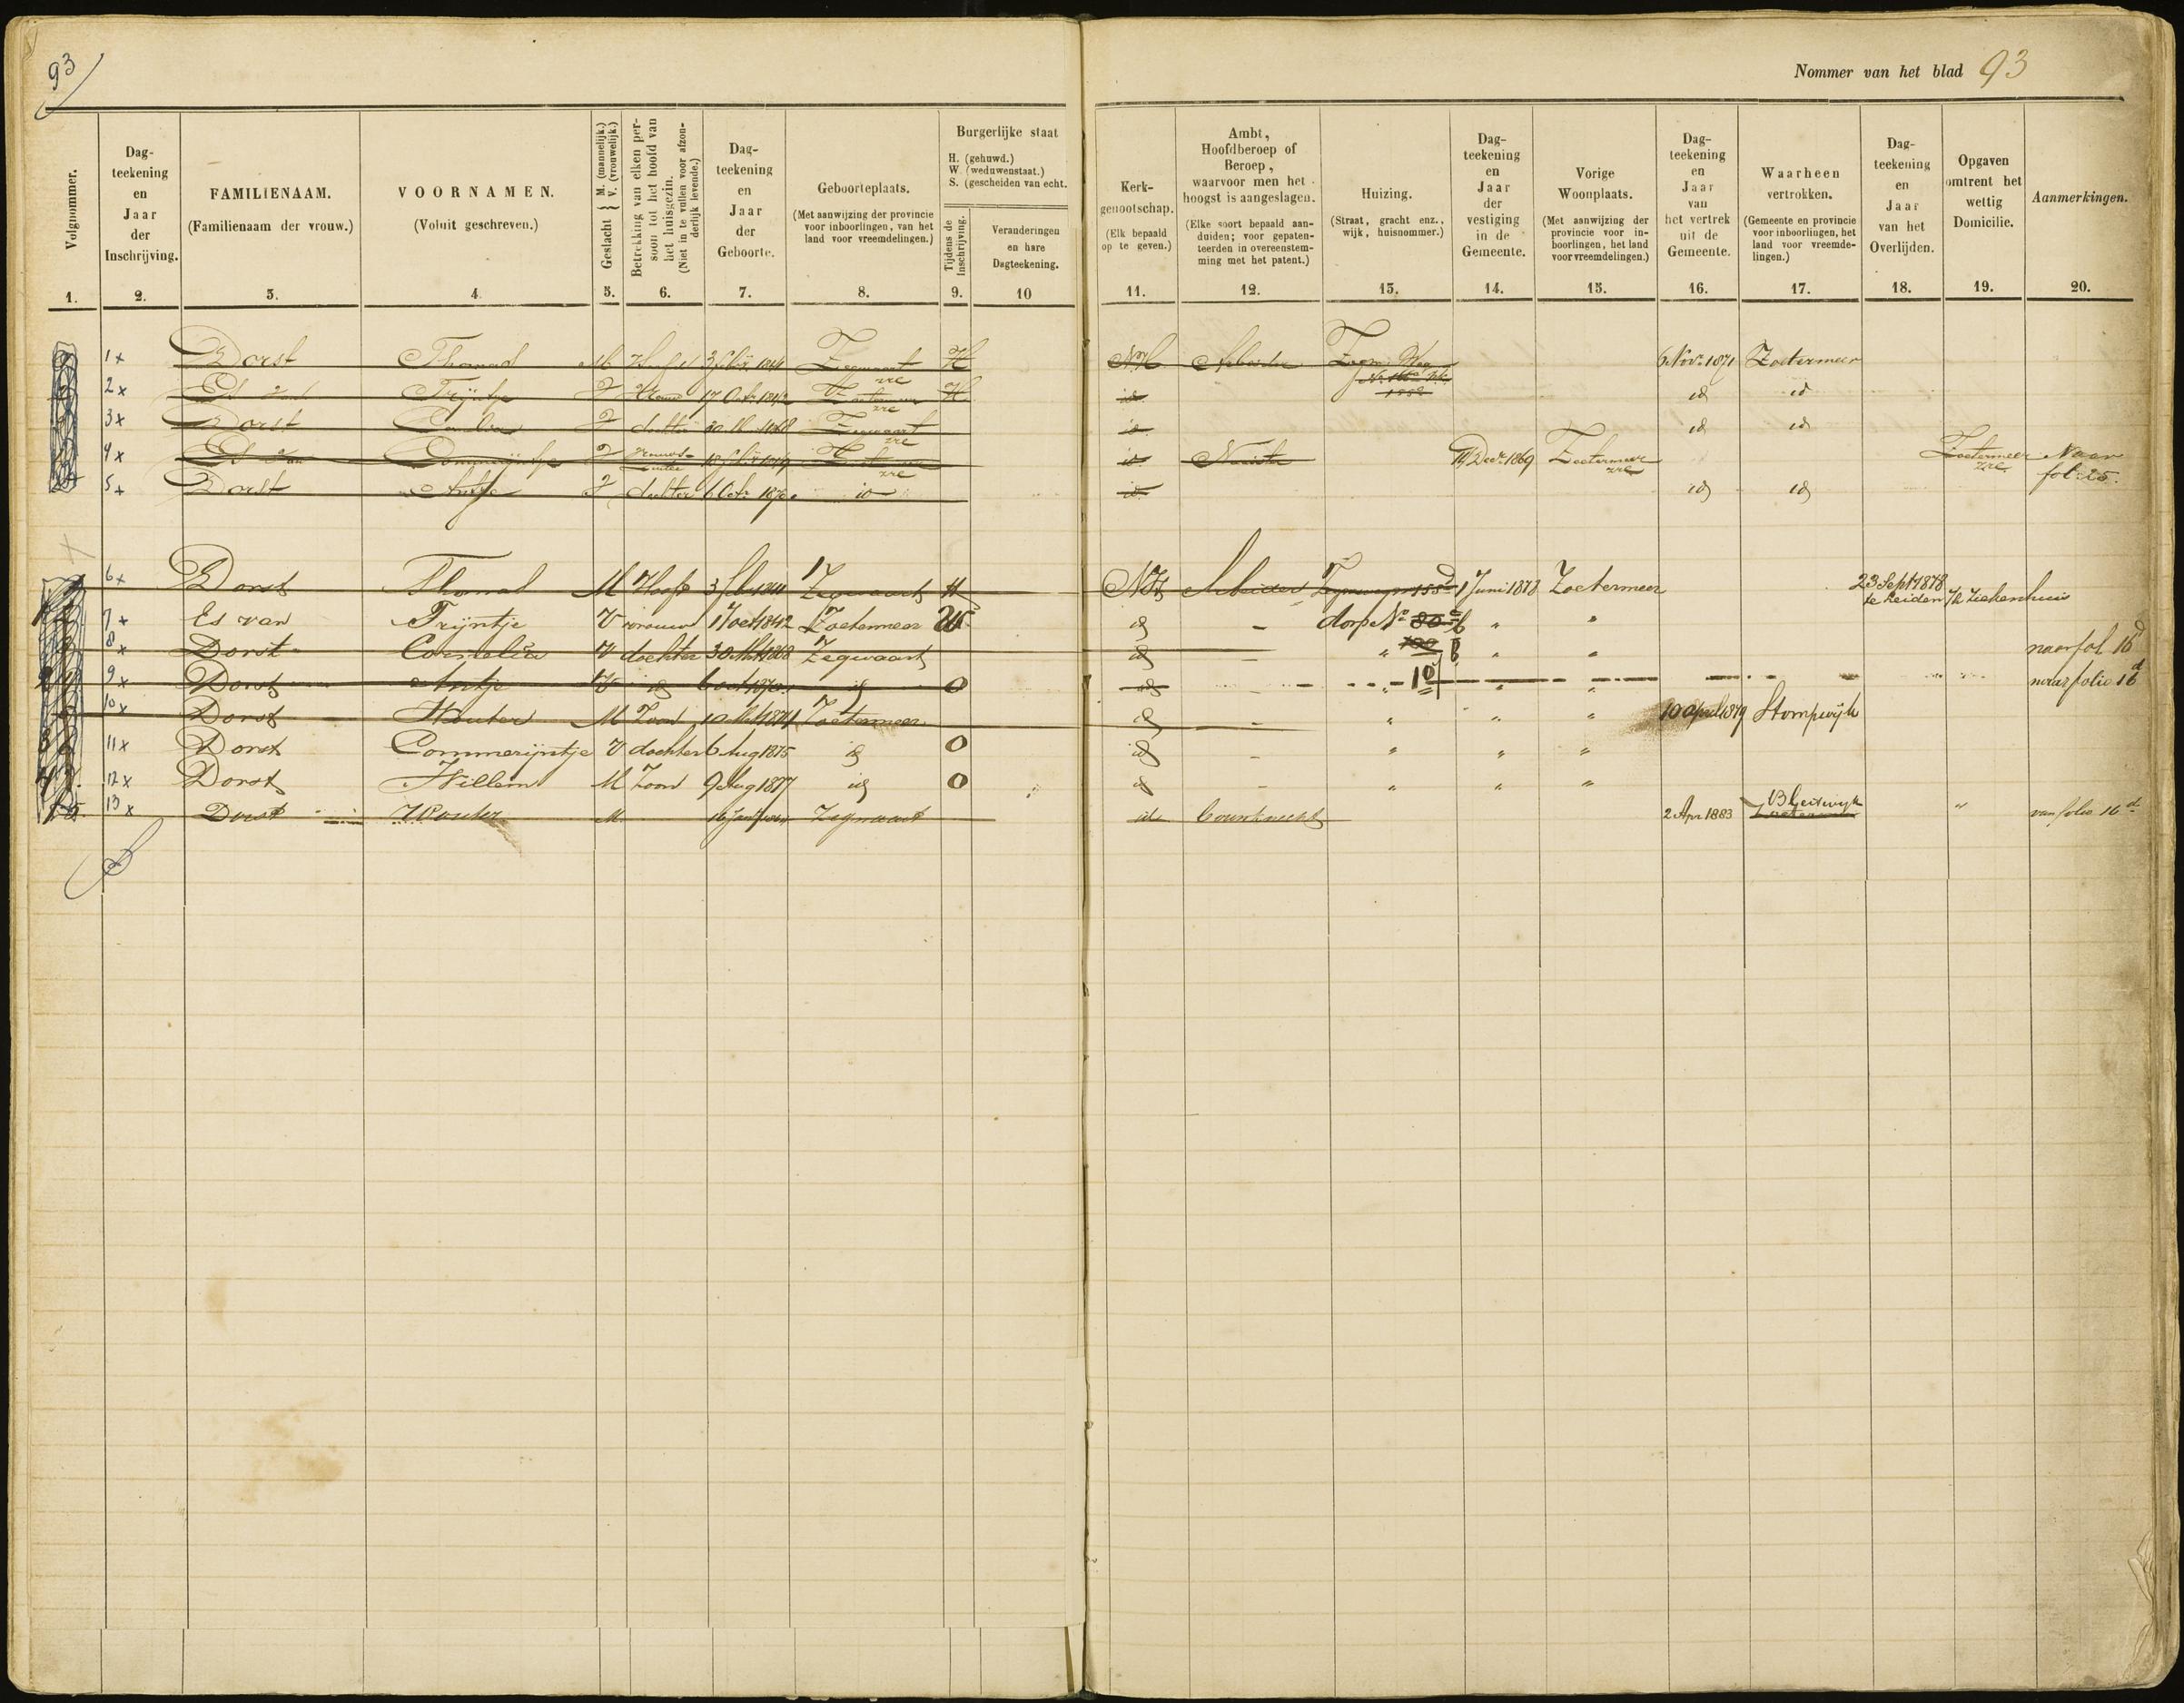 93
Nommer van het blad 93
Volgnommer.
1.
Dag-
teekening
en
Jaar
der
Inschrijving.
2.
FAMILIENAAM.
(Familienaam der vrouw.)
3.
VOORNAMEN.
(Voluit geschreven.)
4.
Geslacht { M. (mannelijk.)
V. (vrouwelijk.)
5.
Betrekking van elken per-
soon tot het hoofd van
het huisgezin.
(Niet in te vullen voor afzon-
derlijk levende.)
6.
Dag-
teekening
en
Jaar
der
Geboorte.
7.
Geboorteplaats.
(Met aanwijzing der provincie
voor inboorlingen, van het
land voor vreemdelingen.)
8.
Burgerlijke staat
H. (gehuwd.)
W. (weduwenstaat.)
S. (gescheiden van echt.
Tijdens de
Inschrijving.
9.
Veranderingen
en hare
Dagteekening.
10
Kerk-
genootschap.
(Elk bepaald
op te geven.)
11.
Ambt,
Hoofdberoep of
Beroep,
waarvoor men het
hoogst is aangeslagen.
(Elke soort bepaald aan-
duiden; voor gepaten-
teerden in overeenstem-
ming met het patent.)
12.
Huizing.
(Straat, gracht enz.,
wijk, huisnommer.)
13.
Dag-
teekening
en
Jaar
der
vestiging
in de
Gemeente.
14.
Vorige
Woonplaats.
(Met aanwijzing der
provincie voor in-
boorlingen, het land
voor vreemdelingen.)
15.
Dag-
teekening
en
Jaar
van
het vertrek
uit de
Gemeente.
16.
Waarheen
vertrokken.
(Gemeente en provincie
voor inboorlingen, het
land voor vreemde-
lingen.)
17.
Dag-
teekening
en
Jaar
van het
Overlijden.
18.
Opgaven
omtrent het
wettig
Domicilie.
19.
Aanmerkingen.
20.
1x Dorst Thomas M Hoofd 1841 Zegwaart H NH Arbeider Zegw. Weg 6 Nov. 1871 Zoetermeer
2x Es van Trijntje V Vrouw 17 Oct. 1842 Zoetermeer H id id id
3x Dorst Cornelia V dochter 30 1868 Zegwaart id id id
4x Es van Commerijntje V id Naaister Decr. 1869 Zoetermeer Zoetermeer Naar
fol. 25.
5x Dorst Antje V dochter 6 Oct. 1870 id id id id
6x Dorst Thomas M Hoofd 3 1841 Zegwaart H NH Arbeider 155d 1 Juni 1878 Zoetermeer 23 Sept 1878
te Leiden i/h Ziekenhuis
7x Es van Trijntje V vrouw 17 oct 1842 Zoetermeer W id - dorp No 80 " "
8x Dorst Cornelia V dochter 30 1868 Zegwaart id - " 100 " " naar fol. 16d
9x Dorst Antje V id 6 oct 1870 id O id - " 10 " " naar folio 16d
10x Dorst Wouter M Zoon 1874 Zoetermeer id - " " " 10 April 1879 Stompwijk
11x Dorst Commerijntje V dochter 6 Aug 1875 id O id - " " "
12x Dorst Willem M Zoon 9 Aug 1877 id O id - " " "
13x Dorst Wouter M Zegwaart id Bouwknecht 2 Apr 1883 Zoetermeer " van folio 16d